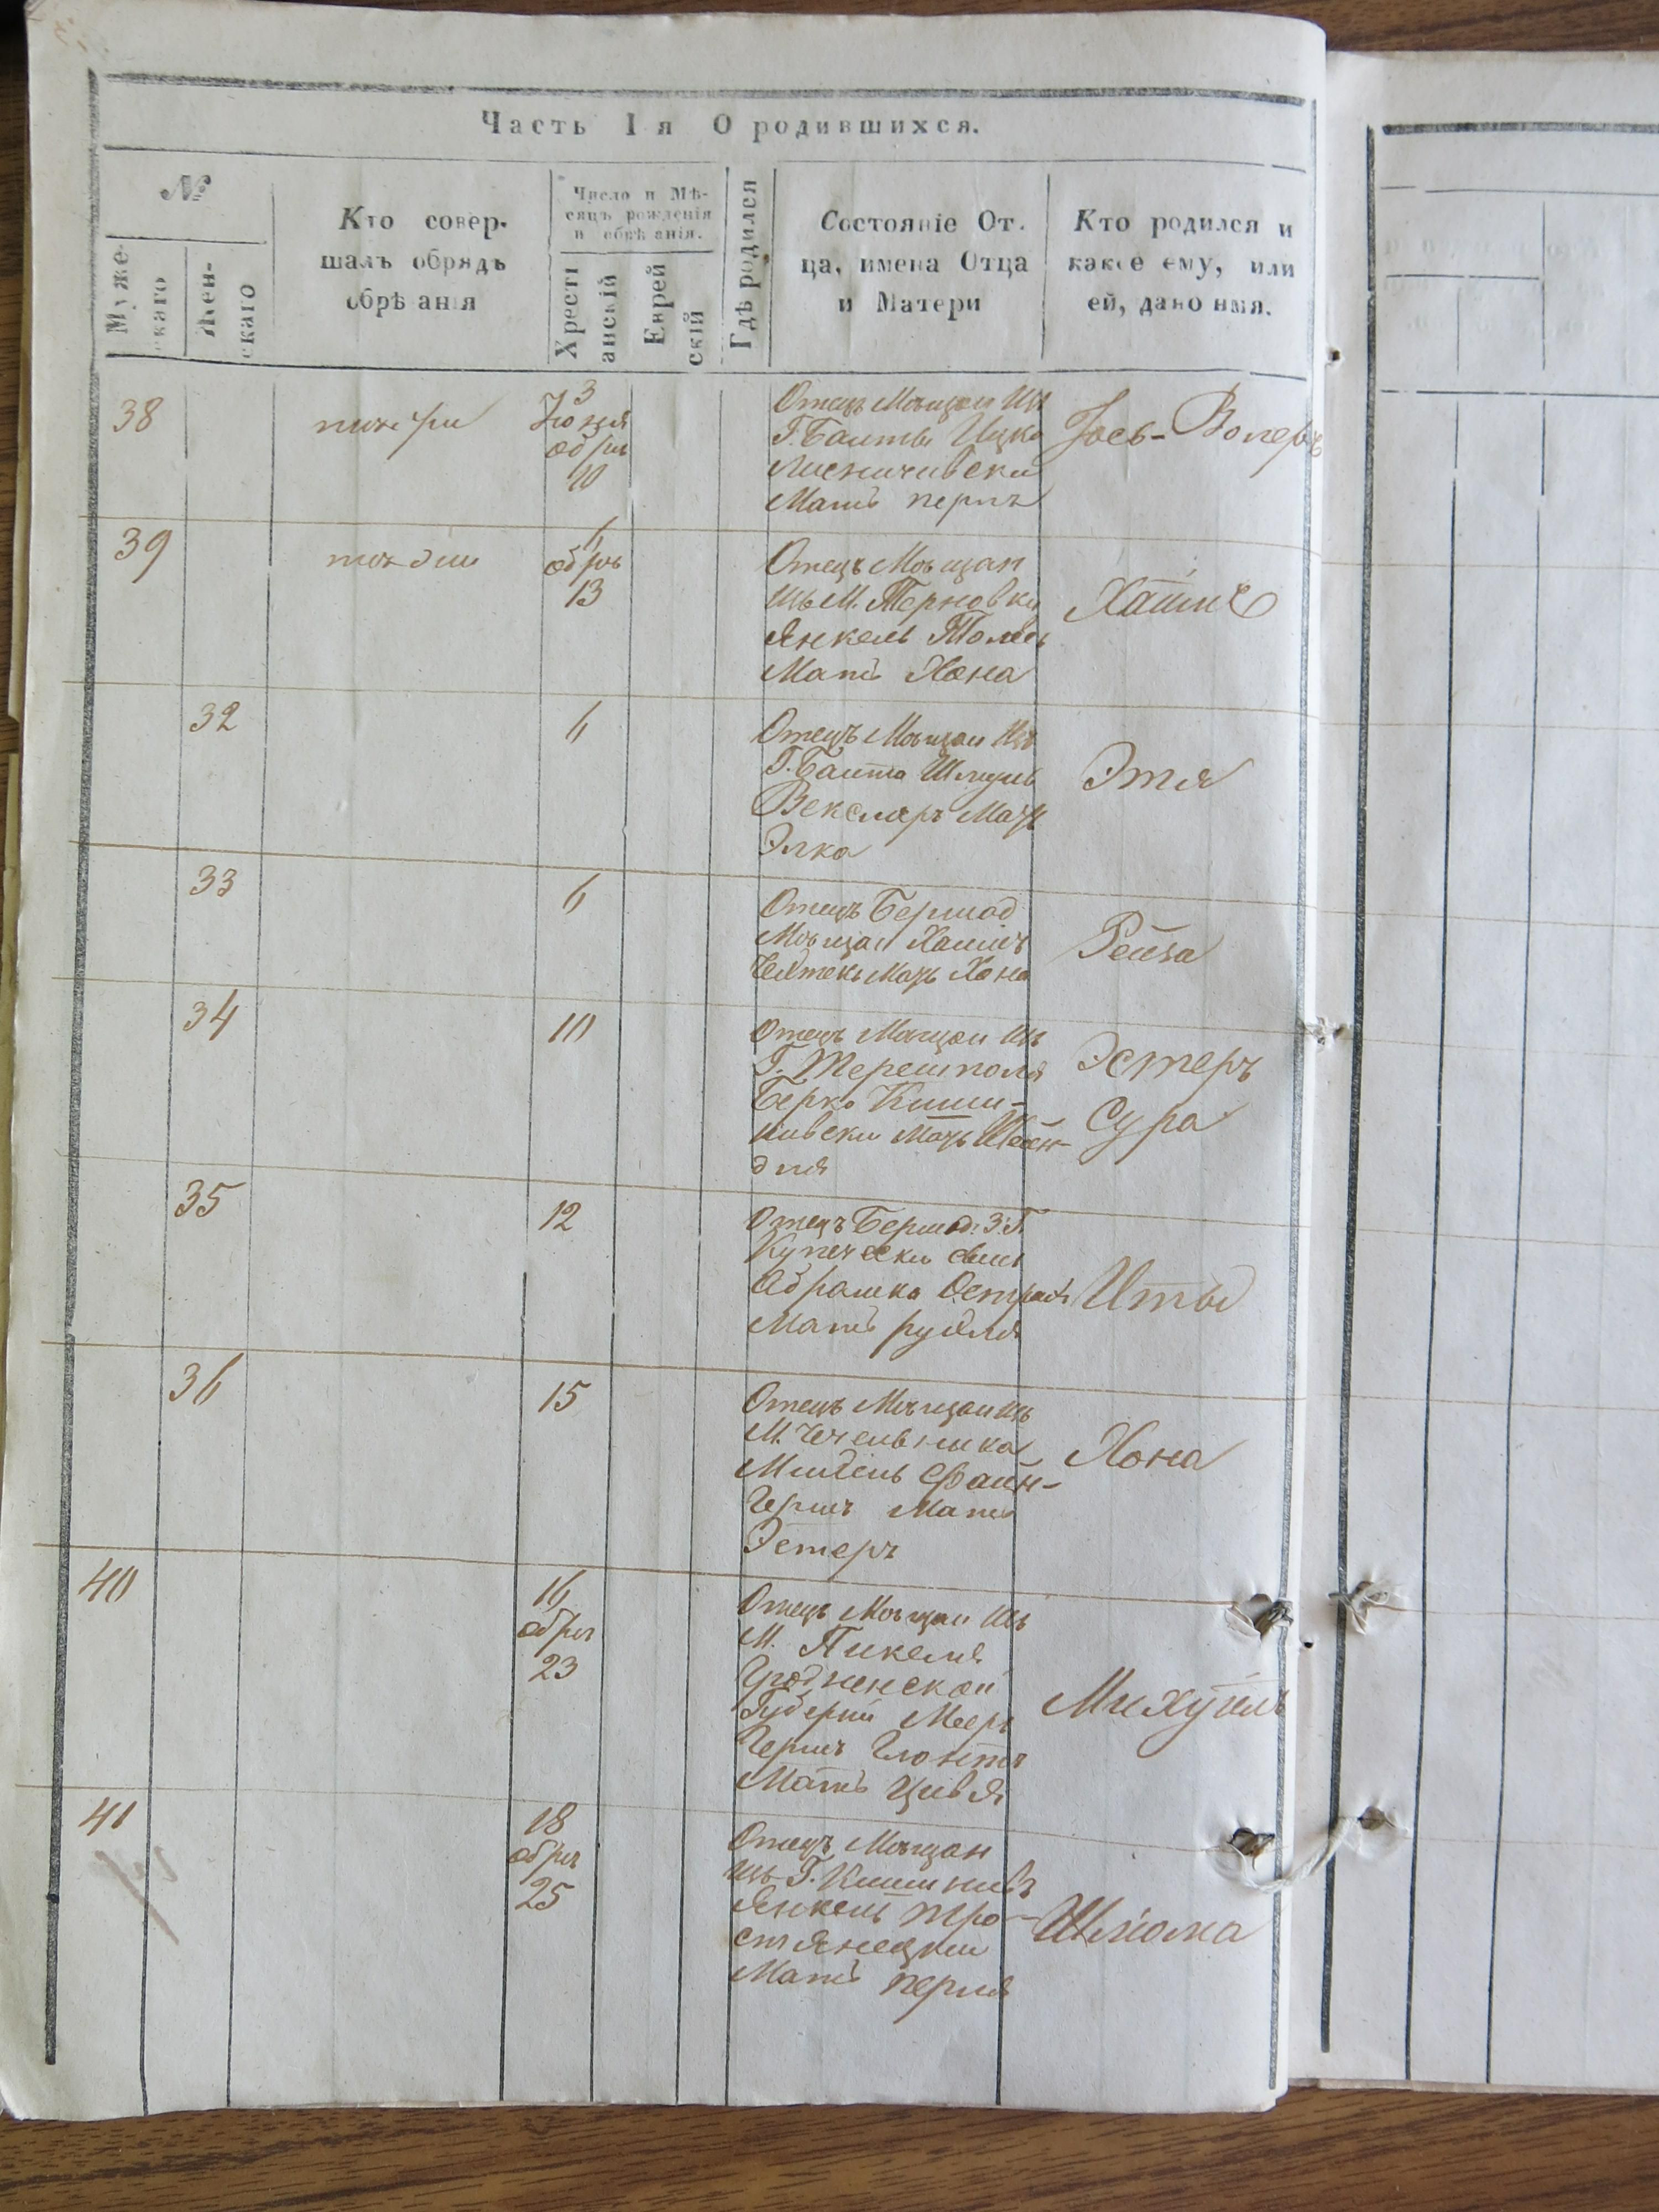 Часть I я О родившихся.
№
Муже-
скаго
Жен-
скаго
Кто совер-
шалъ обрядъ
обрѣзанія
Число и Мѣ-
сяцъ рожденія
и обрѣзанія.
Христі
анскій
Еврей
скій
Гдѣ родился
Состояніе От-
ца, имена Отца
и Матери
Кто родился и
какое ему, или
ей, дано имя.
38
3
Юня
обрѣ
10
Отецъ Мѣщан Изъ
Г. Балты Ицко
Мать перля
39
6
обрѣ
13
Отецъ Мѣщан
изъ М. Терновки
Янкель
Мать Хона
Хаимъ
32
6
Отецъ Мѣщан Изъ
Г. Балта Шмуль
Векслеръ Мать
Элка
Этя
33
6
Отецъ Бершад
Мѣщан Хаимъ
Мать Хона
Рейза
34
10
Отецъ Мѣщан Изъ
Г. Терешполя
Берко Киши-
невски Мать Шейн-
для
Эстеръ
Сура
35
12
Отецъ Бершад: 3: Г.
Купечески сынъ
Абрамка
Мать рухля
Иты
36
15
Отецъ Мѣщан изъ
М. Чечельника
Файн-
Мать
Эстеръ
Хона
40
16
обрѣ
23
Отецъ Мѣщан Изъ
М.
Гродненской
Губерни Мееръ
Гершъ
Мать Цивья
41
18
обрѣ
25
Отецъ Мѣщан
изъ Г. Кишиневъ
Янкель тро-
стянецки
Мать перля
Шлiома